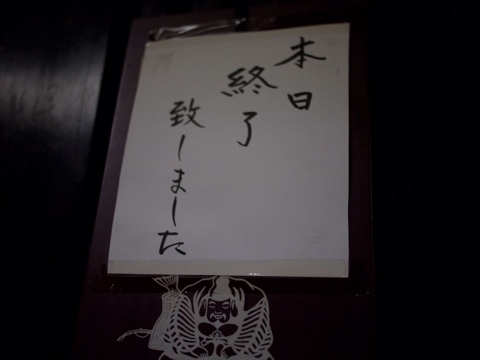 本日
終了
致しました